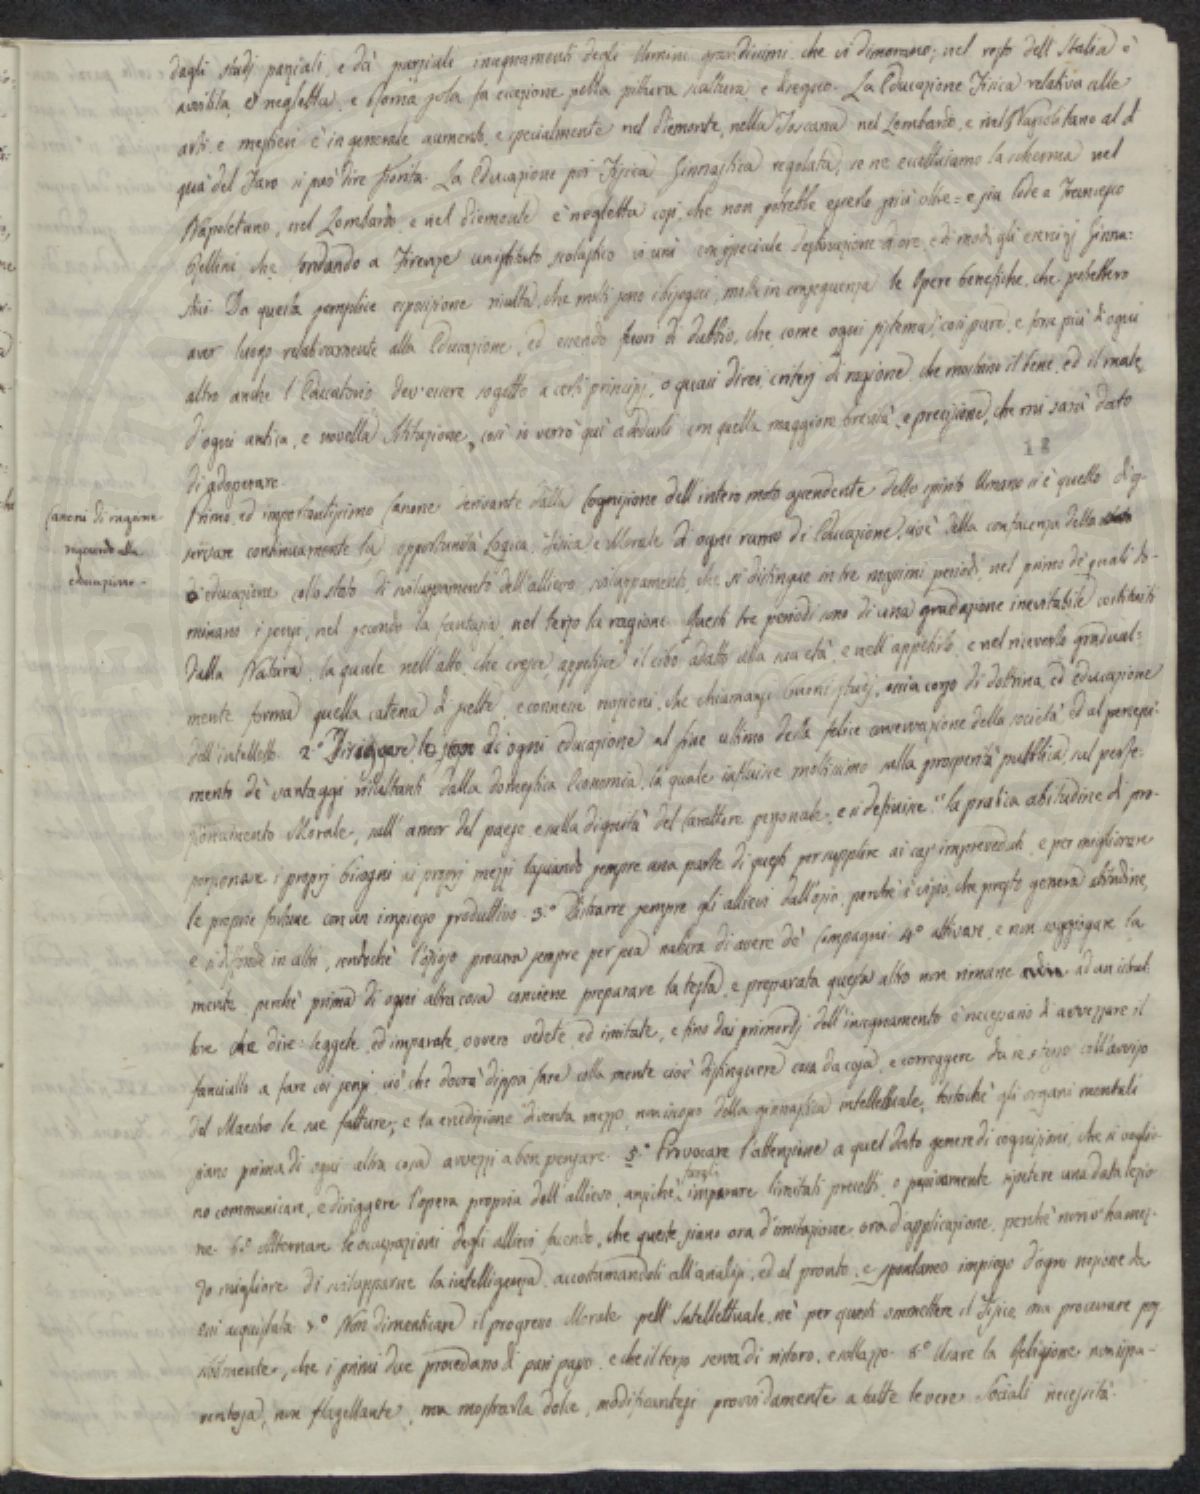 dagli studj parziali, e da' parziali insegnamenti degli Uomini grandissimi che vi dimorano; nel resto dell'Italia è
avvilita, e negletta, e Roma sola fa eccezione pella pittura scultura e disegno. La Educazione Fisica relativa alle
arti e mestieri è in generale aumento, e specialmente nel Piemonte, nella Toscana nel Lombardo, e nel Napolitano al di
quà del Faro si può dire fiorita. La Educazione poi Fisica Ginnastica regolata, se ne eccettuiamo la scherma nel
Napoletano, nel Lombardo, e nel Piemonte è negletta così, che non potrebbe esserlo più oltre = e sia lode a Francesco
Bellini che fondando a Firenze un istituto scolastico vi unì con speciale destinazione d'ore, e di modi gli esercizj Ginna=
stici. Da questa semplice esposizione risulta, che molti sono i bisogni, molte in conseguenza le Opere benefiche, che potettero
aver luogo relativamente alla Educazione, ed essendo fuori di dubbio, che come ogni sistema, così pure, e forse più d'ogni
altro anche l'Educatorio dev'essere sogetto a certi principj, o quasi direi criterj di ragione, che mostrino il bene, ed il male
d'ogni antica, e novella Istituzione, così io verrò quì a dedurli con quella maggiore brevità, e precisione, che mi sarà dato
di adoperare.
12
Canoni di ragione
riguardo alla
educazione -
Primo, ed importantissimo Canone derivante dalla Cognizione dell'intero moto ascendente dello spirito Umano si è quello di os-
servare continuamente la opportunità Logica, Fisica e Morale di ogni ramo di Educazione, cioè della confacenza dello
di educazione collo stato di sviluppamento dell'allievo, sviluppamento, che si distingue in tre massimi periodi, nel primo de' quali do-
minano i sensi, nel secondo la fantasia, nel terzo la ragione. Questi tre periodi sono di una gradazione inevitabile costituiti
dalla Natura, la quale nell'atto, che cresce, appetisce il cibo adatto alla sua età, e nell'appetirlo, e nel riceverlo gradual=
mente forma quella catena di scelte, e connesse nozioni, che chiamansi buoni studj, ossia corso di dottrina, ed educazione
dell'intelletto. 2.° Diriggere di ogni educazione al fine ultimo della felice conservazione della società, ed al persegui-
mento de' vantaggi risultanti dalla domestica Economia, la quale influisce moltissimo sulla prosperità pubblica, sul perfe-
zionamento Morale, sull'amor del paese e sulla dignità del Carattere personale, e si definisce " la pratica abitudine di pro-
porzionare i proprj bisogni ai proprj mezzi lasciando sempre una parte di questi per supplire ai casi impreveduti, e per migliorare
le proprie fortune con un impiego produttivo. 3.° Distrarre sempre gli allievi dall'ozio, perchè è vizio, che presto genera abitudine,
e si difonde in altri, sendochè l'ozioso procura sempre per sua natura di avere de' Compagni. 4.° attivare, e non soggiogare la
mente, perchè prima di ogni altra cosa conviene preparare la testa, e preparata questa altro non rimane ad un istrut-
tore che dire: leggete, ed imparate, ovvero vedete, ed imitate, e fino dai primordj dell'insegnamento è necessario di avvezzare il
fanciullo a fare coi sensi ciò, che dovrà dippoi fare colla mente cioè distinguere cosa da cosa, e correggere da se stesso coll'avviso
del Maestro le sue fatture, e la erudizione diventa mezzo, non iscopo della ginnastica intellettuale, tostochè gli organi mentali
siano prima di ogni altra cosa avvezzi a ben pensare. 5.° Provocare l'attenzione a quel dato genere di cognizioni, che si voglio-
no communicare, e diriggere l'opera propria dell'allievo, anzichè fargli imparare limitati precetti, o passivamente ripetere una data lezio-
ne. 6.° Alternare le occupazioni degli allievi facendo, che queste siano ora d'imitazione, ora d'applicazione, perchè non v'ha mez-
zo migliore di svilupparne la intelligenza, accostumandoli all'analisi, ed al pronto, e spontaneo impiego d'ogni nozione da
essi acquistata. 7.° Non dimenticare il progresso Morale pell'Intellettuale, nè per questi ommettere il Fisico, ma procurare pos
sibilmente, che i primi due procedano di pari passo, e che il terzo serva di ristoro, e sollazzo. 8.° Usare la Religione non spa-
ventosa, non flagellante, ma mostrarla dolce, modificantesi provvidamente a tutte le vere Sociali necessità.